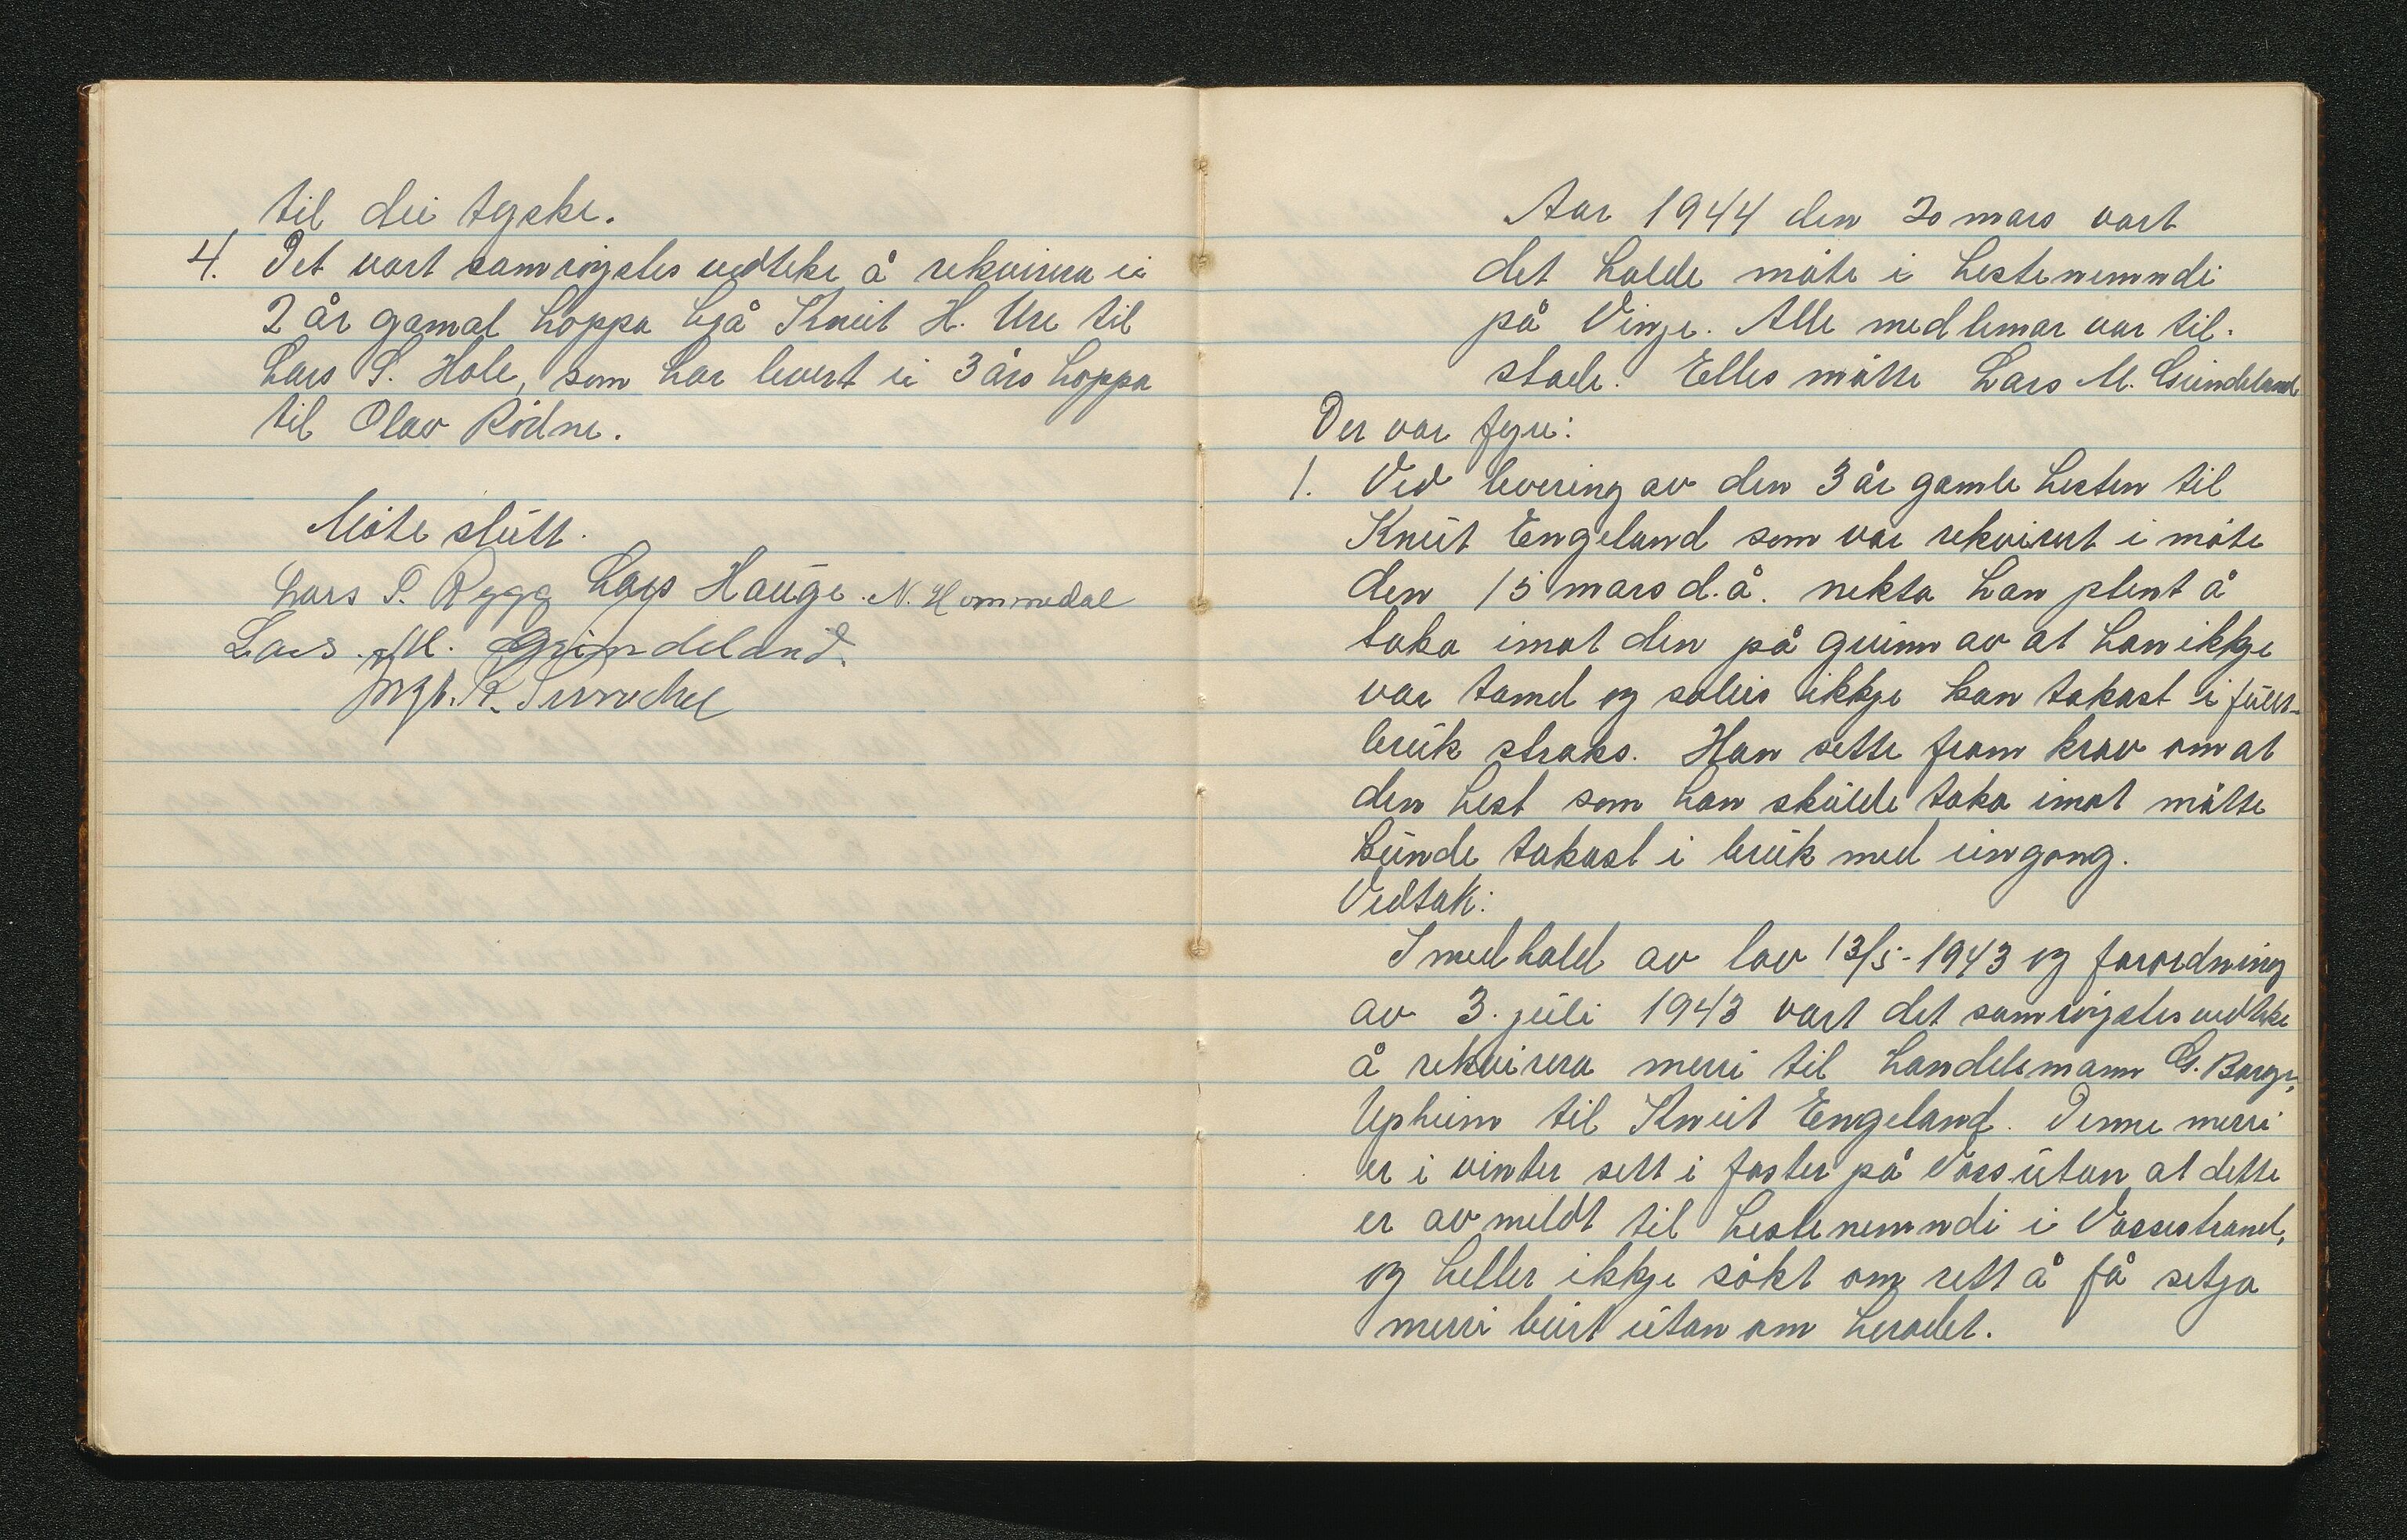 til dei tyske.
4. Det vart samrøystes vedteke å rekvirera ei
2 år gamal hoppa hjå Knut H. Ure til
Lars S. Hole, som har levert ei 3 års hoppa
til Olav Rödne.
Møte slutt.
Lars P. Rygg Lars Hauge. N. Hommedal
Lars M. Grindeland.
Aar 1944 den 20 mars vart
det halde møte i hestenemndi
på Vinje. Alle medlemar var til-
stade. Elles møtte Lars M. Grindeland
Der var fyre:
1. Ved levering av den 3 år gamle hesten til
Knut Engeland som var rekvirert i møte
den 15 mars d.å. nekta han plent å
taka imot den på grunn av at han ikkje
var tamd og soleis ikkje kan takast i fullt-
bruk straks. Han sette fram krav om at
den hest som han skulde taka imot måtte
kunde takast i bruk med eingong.
Vedtak:
I medhald av lov 13/5-1943 og forordning
av 3. juli 1943 vart det samrøystes vedteke
å rekvirera merri til handelsmann G. Barge,
Upheim til Knut Engeland. Denne merri
er i vinter sett i foster på Voss utan at dette
er avmeldt til hestenemndi i Vossestrand,
og heller ikkje søkt om rett å få setja
merri burt utanom heradet.